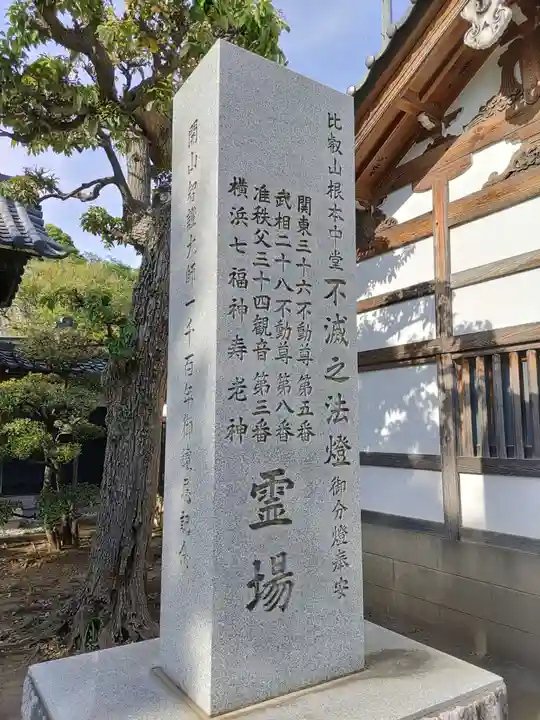 比叡山根本中堂不滅之法燈御分燈奉安
関東三十六不動尊第五番
武相二十八不動尊第八番
准秩父三十四観音第三番
横浜七福神寿老神
霊場
開山智證大師一千百年御遠忌記念